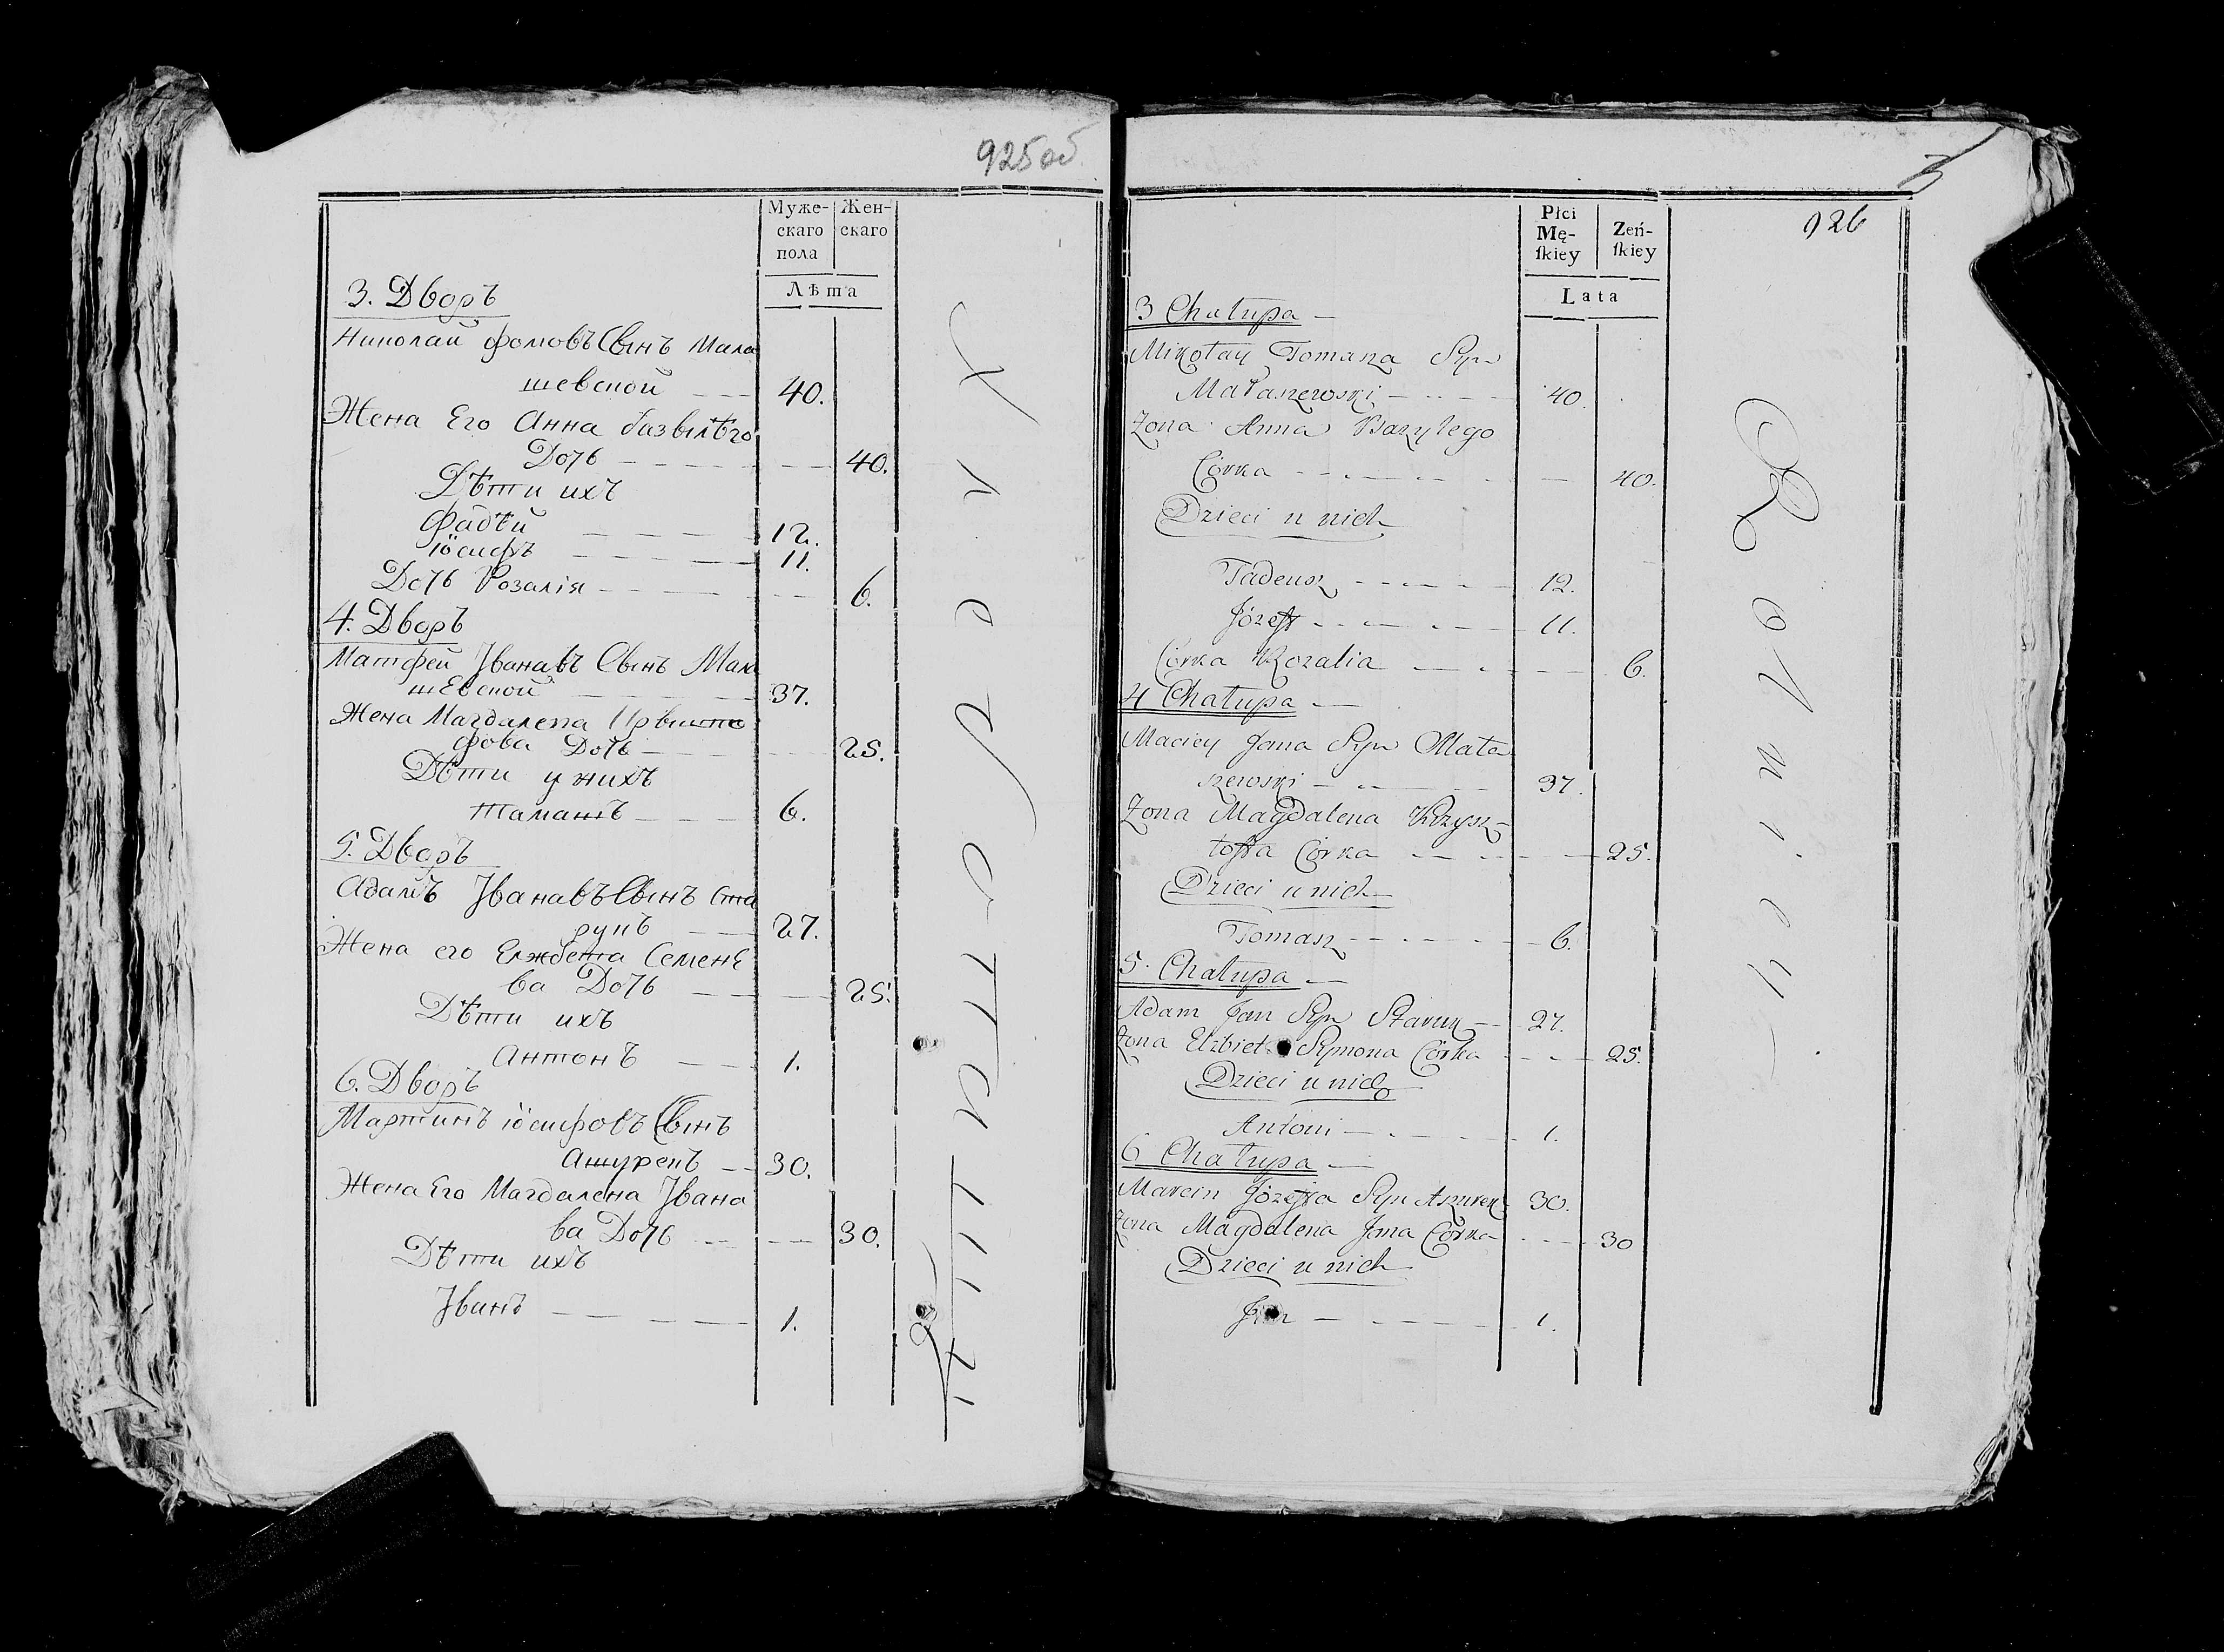 925 об
Муже-
скаго
пола
Жен-
скаго
Лѣта
3. Дворъ
Николай фомовъ Сынъ Мала
шевской 40.
Жена Его Анна базылѣго
Дочь 40.
Дѣти ихъ
Фадѣй 12.
іосифъ 11.
Дочь Розалія 6.
4. Дворъ
Матфей Іванавъ Сынъ Мала
шЕвской 37.
Жена Магдалена Крышто
фова Дочь 25.
Дѣти у нихъ
Тамашъ 6.
5. Дворъ
Адамъ Іванавъ Сынъ Ста
рукъ 27.
Жена его Елжбета СеменЕ
ва Дочь 25.
Дѣти ихъ
Антонъ 1.
6. Дворъ
Мартинъ іосифовъ Сынъ
Ашурекъ 30.
Жена Его Магдалена Івана
ва Дочь 30.
Дѣти ихъ
Іванъ 1.
3
926
Płci
Mę-
ſkiey
Zeń-
ſkiey
Lata
3 Chałupa
Mikołay Tomasza Syn
Małaszewski 40.
Żona Anna Bazylego
Córka 40.
Dzieci u nich
Tadeusz 12.
Józeff 11.
Córka Rozalia 6.
4 Chałupa
Maciey Jana Syn Mała
szewski 37.
Żona Magdalena Krzysz-
toffa Córka 25.
Dzieci u nich
Tomasz 6.
5. Chałupa
Adam Jan Syn Staruk 27.
Żona Elzbiet Symona Córka 25.
Dzieci u nich
Antoni 1.
6 Chałupa
Marcin Józeffa Syn Aszurek 30.
Żona Magdalena Jana Córka 30
Dzieci u nich
Jan 1.
R o l n i c y